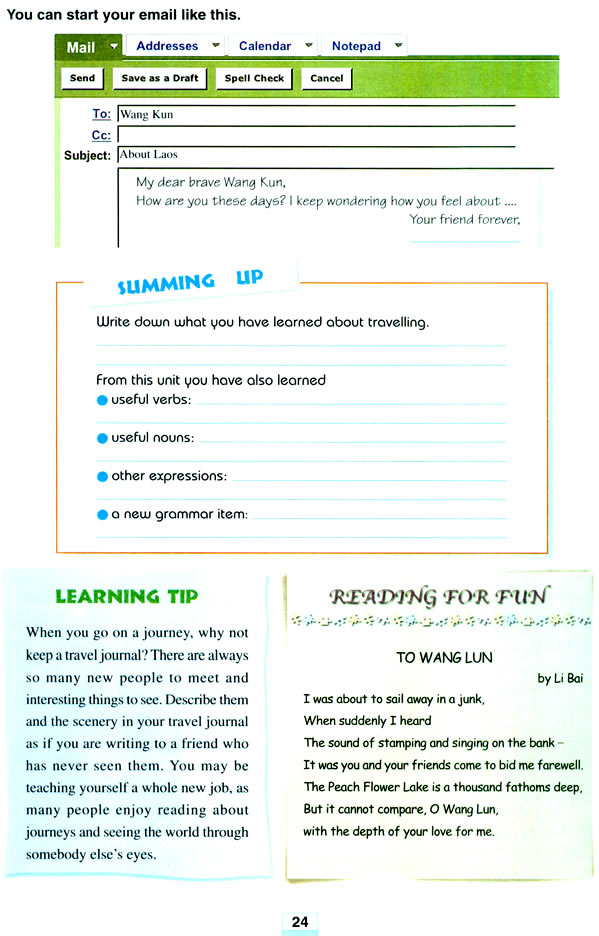 You can start your email like this.
Mail Addresses Calendar Notepad
Send Save as a Draft Spell Check Cancel
To: Wang Kun
Cc:
Subject: About Laos
My dear brave Wang Kun,
How are you these days? I keep wondering how you feel about ....
Your friend forever,
SUMMING UP
Write down what you have learned about travelling.
From this unit you have also learned
● useful verbs:
● useful nouns:
● other expressions:
● a new grammar item:
LEARNING TIP
When you go on a journey, why not
keep a travel journal? There are always
so many new people to meet and
interesting things to see. Describe them
and the scenery in your travel journal
as if you are writing to a friend who
has never seen them. You may be
teaching yourself a whole new job, as
many people enjoy reading about
journeys and seeing the world through
somebody else's eyes.
READING FOR FUN
TO WANG LUN
by Li Bai
I was about to sail away in a junk,
When suddenly I heard
The sound of stamping and singing on the bank –
It was you and your friends come to bid me farewell.
The Peach Flower Lake is a thousand fathoms deep,
But it cannot compare, O Wang Lun,
with the depth of your love for me.
24